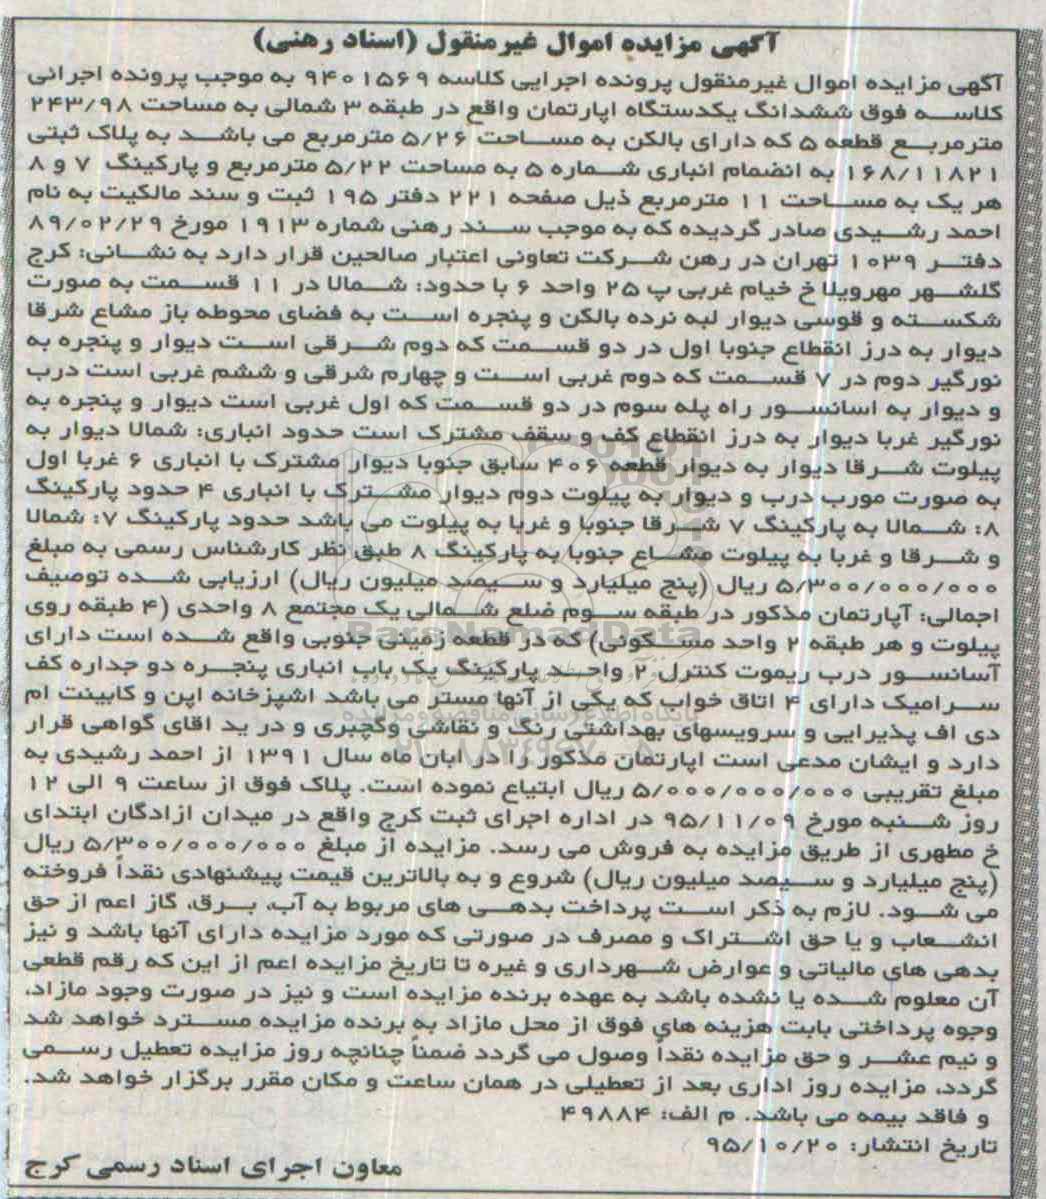 آگهی مزایده اموال غیرمنقول (اسناد رهنی)
آگهی مزایده اموال غیرمنقول پرونده اجرایی کلاسه ۹۴۰۱۵۶۹ به موجب پرونده اجرائی
کلاسه فوق ششدانگ یکدستگاه اپارتمان واقع در طبقه ۳ شمالی به مساحت ۲۴۳/۹۸
مترمربع قطعه ۵ که دارای بالکن به مساحت ۵/۲۶ مترمربع می باشد به پلاک ثبتی
۱۶۸/۱۱۸۲۱ به انضمام انباری شماره ۵ به مساحت ۵/۲۲ مترمربع و پارکینگ ۷ و ۸
هر یک به مساحت ۱۱ مترمربع ذیل صفحه ۲۲۱ دفتر ۱۹۵ ثبت و سند مالکیت به نام
احمد رشیدی صادر گردیده که به موجب سند رهنی شماره ۱۹۱۳ مورخ ۸۹/۰۲/۲۹
دفتر ۱۰۳۹ تهران در رهن شرکت تعاونی اعتبار صالحین قرار دارد به نشانی: کرج
گلشهر مهرویلا خ خیام غربی پ ۲۵ واحد ۶ با حدود: شمالا در ۱۱ قسمت به صورت
شکسته و قوسی دیوار لبه نرده بالکن و پنجره است به فضای محوطه باز مشاع شرقا
دیوار به درز انقطاع جنوبا اول در دو قسمت که دوم شرقی است دیوار و پنجره به
نورگیر دوم در ۷ قسمت که دوم غربی است و چهارم شرقی و ششم غربی است درب
و دیوار به اسانسور راه پله سوم در دو قسمت که اول غربی است دیوار و پنجره به
نورگیر غربا دیوار به درز انقطاع کف و سقف مشترک است حدود انباری: شمالا دیوار به
پیلوت شرقا دیوار به دیوار قطعه ۴۰۶ سابق جنوبا دیوار مشترک با انباری ۶ غربا اول
به صورت مورب درب و دیوار به پیلوت دوم دیوار مشترک با انباری ۴ حدود پارکینگ
۸: شمالا به پارکینگ ۷ شرقا جنوبا و غربا به پیلوت می باشد حدود پارکینگ ۷: شمالا
و شرقا و غربا به پیلوت مشاع جنوبا به پارکینگ ۸ طبق نظر کارشناس رسمی به مبلغ
۵/۳۰۰/۰۰۰/۰۰۰ ریال (پنج میلیارد و سیصد میلیون ریال) ارزیابی شده توصیف
اجمالی: آپارتمان مذکور در طبقه سوم ضلع شمالی یک مجتمع ۸ واحدی (۴ طبقه روی
پیلوت و هر طبقه ۲ واحد مسکونی) که در قطعه زمینی جنوبی واقع شده است دارای
آسانسور درب ریموت کنترل ۲ واحد پارکینگ یک باب انباری پنجره دو جداره کف
سرامیک دارای ۴ اتاق خواب که یکی از آنها مستر می باشد اشپزخانه اپن و کابینت ام
دی اف پذیرایی و سرویسهای بهداشتی رنگ و نقاشی وگچبری و در ید اقای گواهی قرار
دارد و ایشان مدعی است اپارتمان مذکور را در ابان ماه سال ۱۳۹۱ از احمد رشیدی به
مبلغ تقریبی ۵/۰۰۰/۰۰۰/۰۰۰ ریال ابتیاع نموده است. پلاک فوق از ساعت ۹ الی ۱۲
روز شنبه مورخ ۹۵/۱۱/۰۹ در اداره اجرای ثبت کرج واقع در میدان ازادگان ابتدای
خ مطهری از طریق مزایده به فروش می رسد. مزایده از مبلغ ۵/۳۰۰/۰۰۰/۰۰۰ ریال
(پنج میلیارد و سیصد میلیون ریال) شروع و به بالاترین قیمت پیشنهادی نقداً فروخته
می شود. لازم به ذکر است پرداخت بدهی های مربوط به آب، برق، گاز اعم از حق
انشعاب و یا حق اشتراک و مصرف در صورتی که مورد مزایده دارای آنها باشد و نیز
بدهی های مالیاتی و عوارض شهرداری و غیره تا تاریخ مزایده اعم از این که رقم قطعی
آن معلوم شده یا نشده باشد به عهده برنده مزایده است و نیز در صورت وجود مازاد،
وجوه پرداختی بابت هزینه های فوق از محل مازاد به برنده مزایده مسترد خواهد شد
و نیم عشر و حق مزایده نقداً وصول می گردد ضمناً چنانچه روز مزایده تعطیل رسمی
گردد، مزایده روز اداری بعد از تعطیلی در همان ساعت و مکان مقرر برگزار خواهد شد.
و فاقد بیمه می باشد. م الف: ۴۹۸۸۴
تاریخ انتشار: ۹۵/۱۰/۲۰
معاون اجرای اسناد رسمی کرج
ParsNamadData
پایگاه اطلاع رسانی مناقصه و مزایده